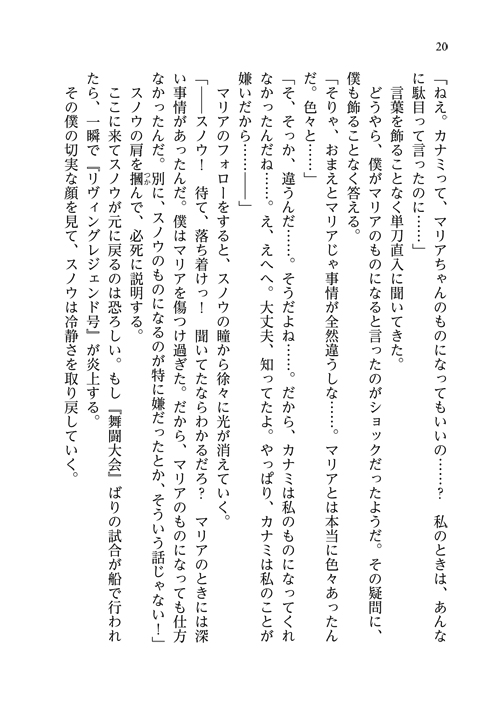 20
「ねえ。カナミって、マリアちゃんのものになってもいいの……？　私のときは、あんな
に駄目って言ったのに……」
　言葉を飾ることなく単刀直入に聞いてきた。
　どうやら、僕がマリアのものになると言ったのがショックだったようだ。その疑問に、
僕も飾ることなく答える。
「そりゃ、おまえとマリアじゃ事情が全然違うしな……。マリアとは本当に色々あったん
だ。色々と……」
「そ、そっか、違うんだ……。そうだよね……。だから、カナミは私のものになってくれ
なかったんだね……。え、えへへ。大丈夫、知ってたよ。やっぱり、カナミは私のことが
嫌いだから…………――」
　マリアのフォローをすると、スノウの瞳から徐々に光が消えていく。
「――スノウ！　待て、落ち着けっ！　聞いてたならわかるだろ？　マリアのときには深
い事情があったんだ。僕はマリアを傷つけ過ぎた。だから、マリアのものになっても仕方
なかったんだ。別に、スノウのものになるのが特に嫌だったとか、そういう話じゃない！」
　スノウの肩を摑つかんで、必死に説明する。
　ここに来てスノウが元に戻るのは恐ろしい。もし『舞闘大会』ばりの試合が船で行われ
たら、一瞬で『リヴィングレジェンド号』が炎上する。
　その僕の切実な顔を見て、スノウは冷静さを取り戻していく。